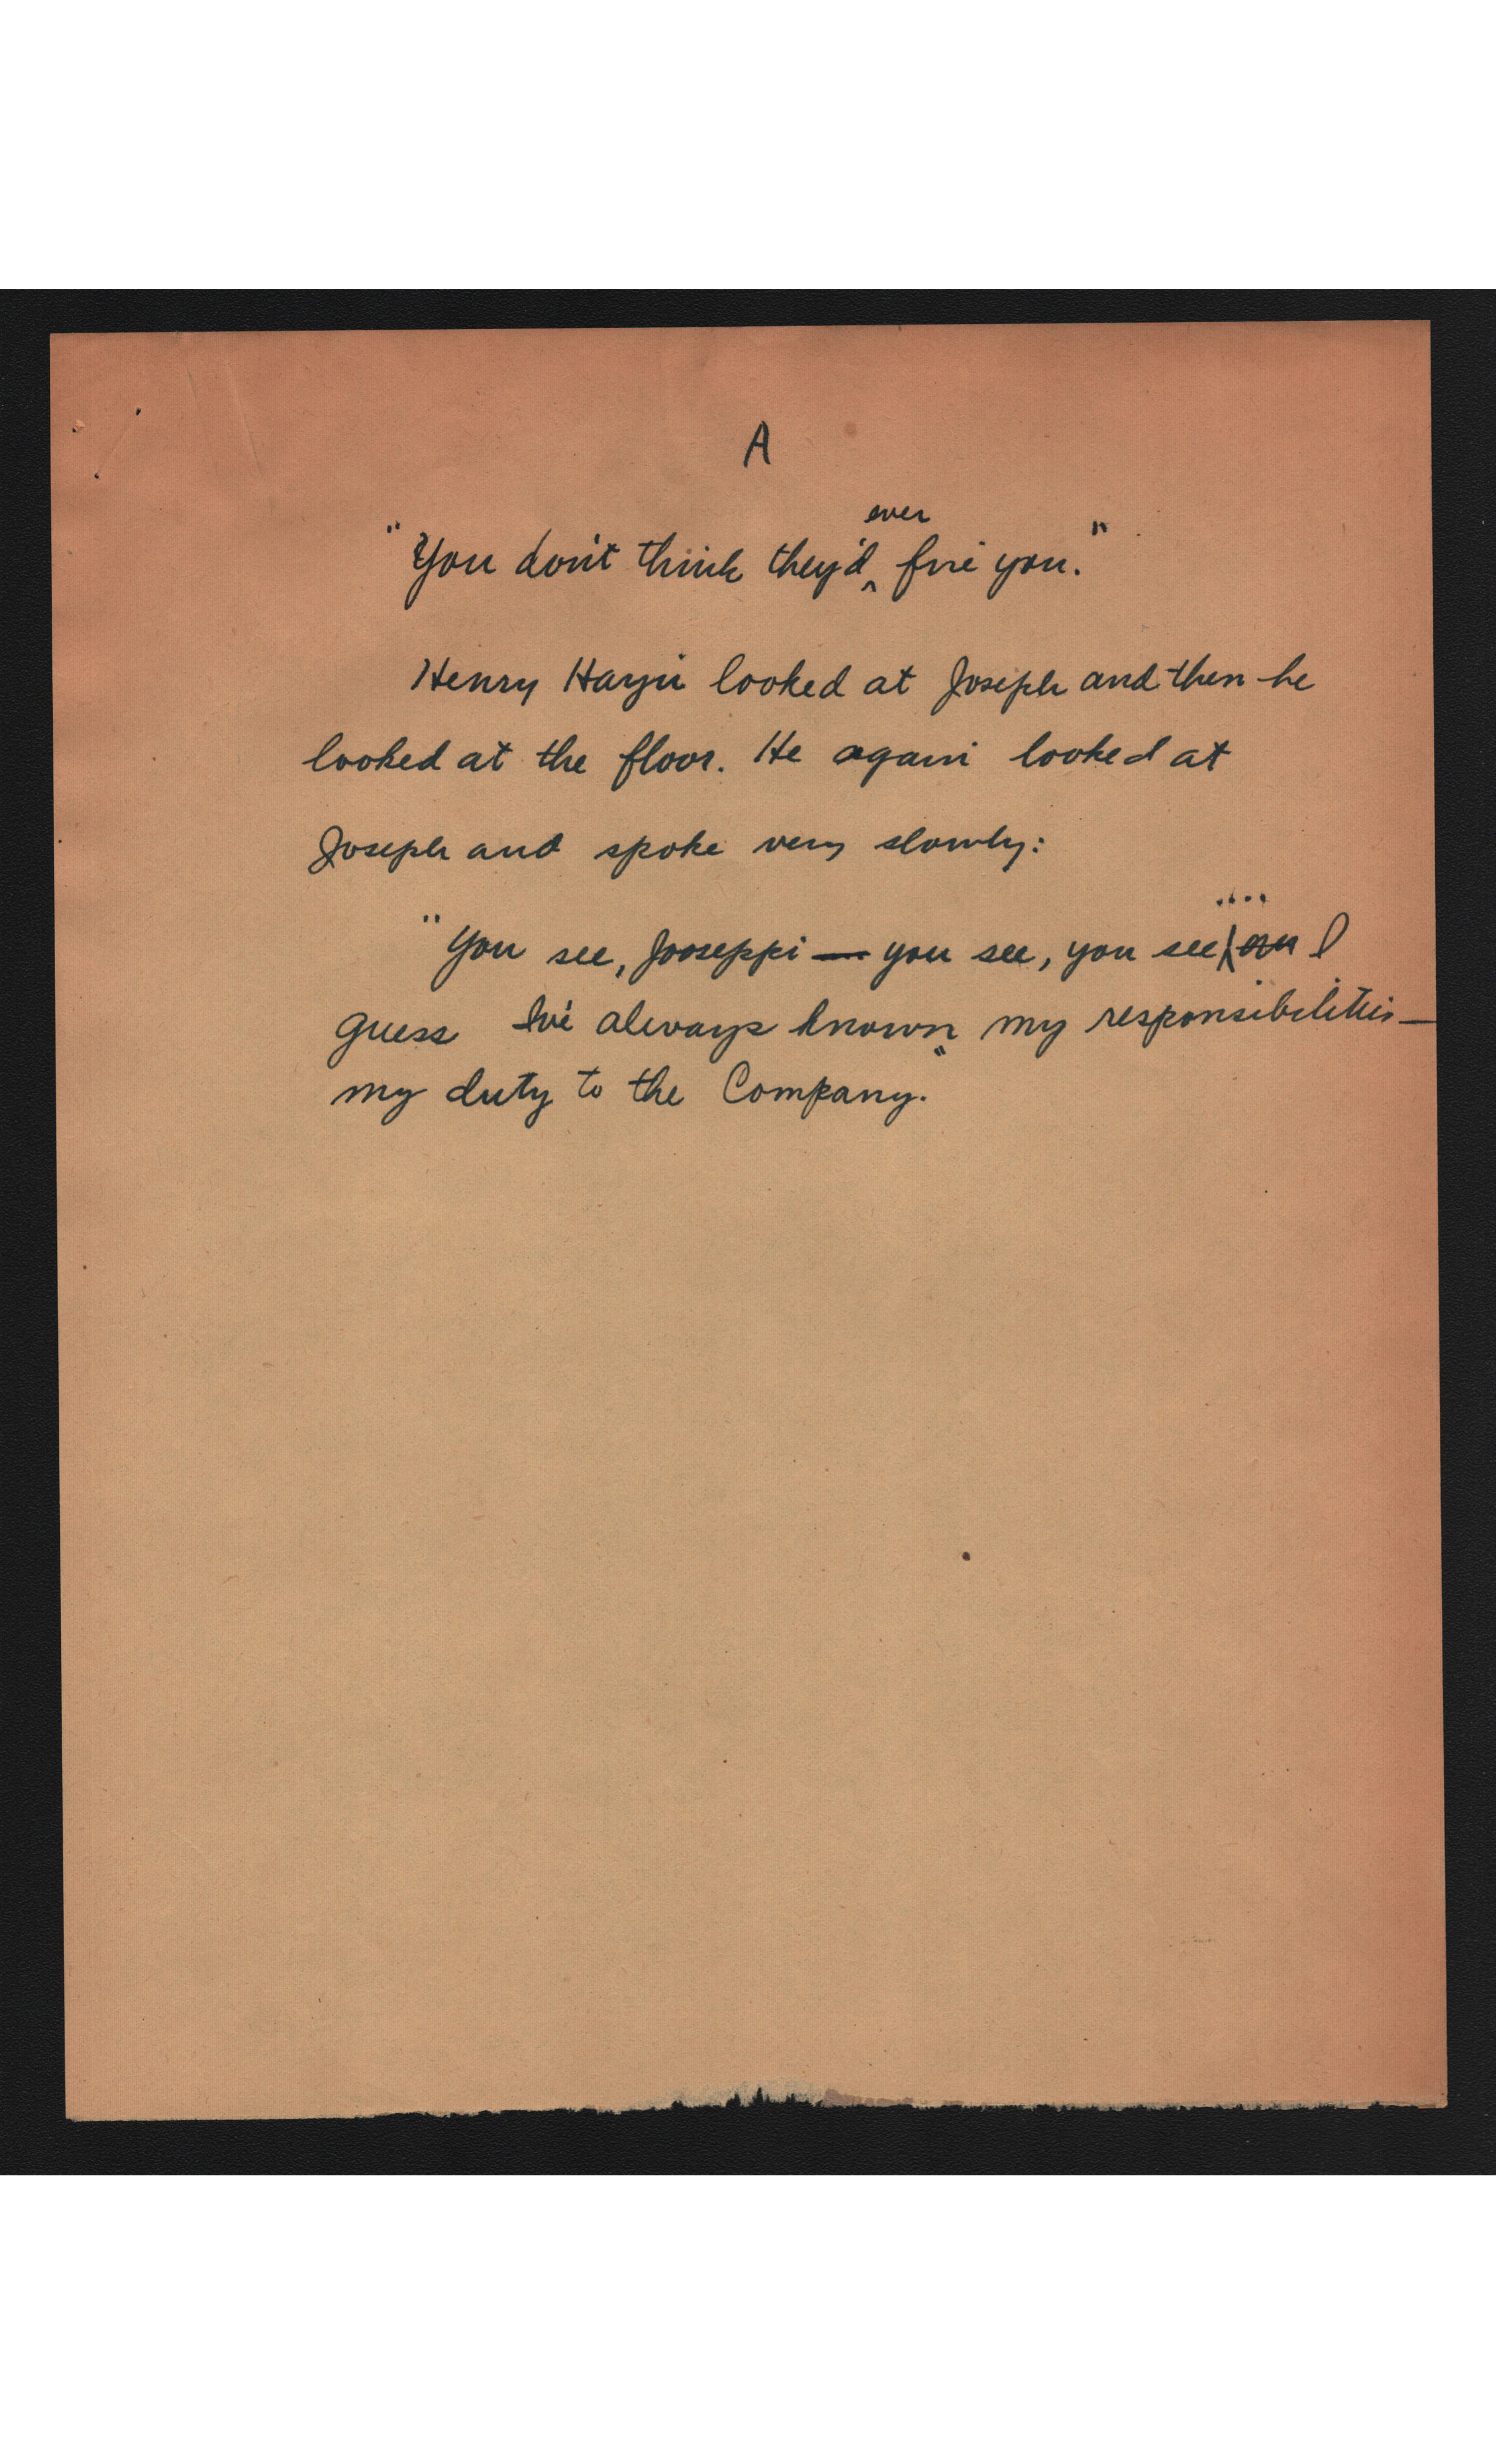 A
"You don't think they'd ever fire you."
Henry Hayin looked at Joseph and then he
looked at the floor. He again looked at
Joseph and spoke very slowly:
"You see, Jooseppi — you see, you see .... I
guess I've always known my responsibilities —
my duty to the Company."